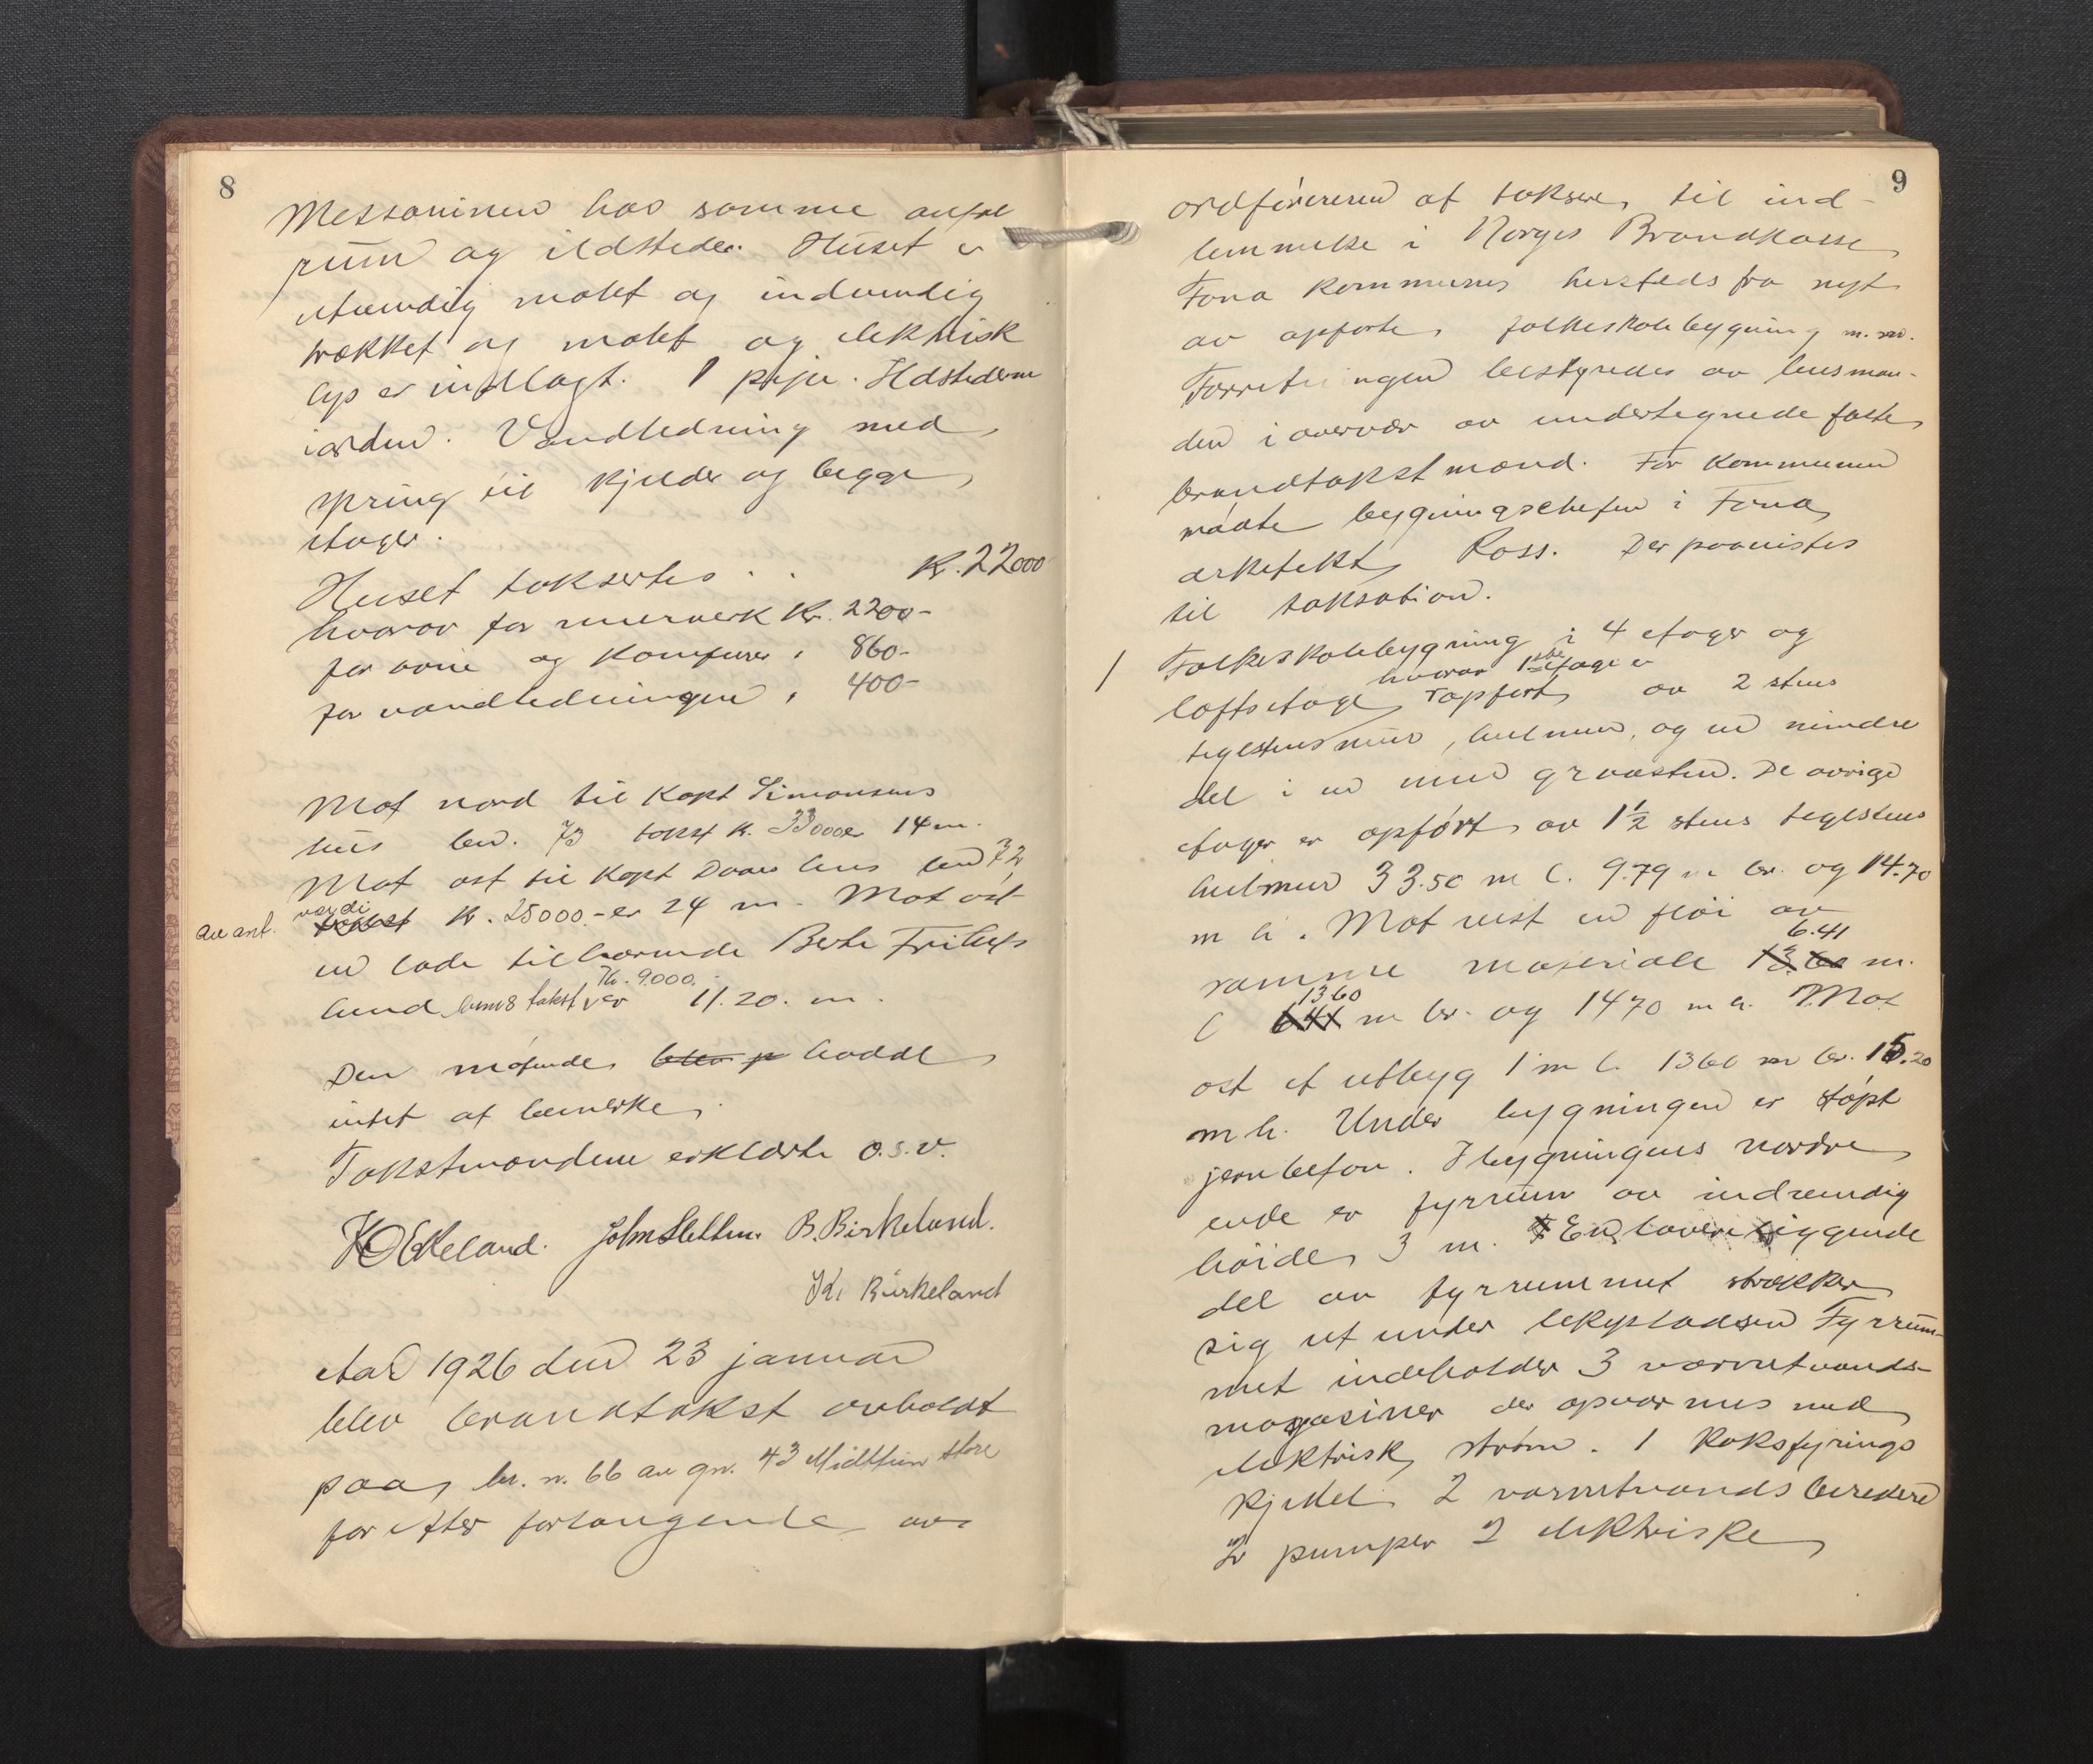 8
Messaninen har samme antal
rum og ildsteder. Huset er
utvendig malet og indvendig
trækket og malet og elektrisk
lys er indlagt. 1 pipe. Ildstederne
i orden. Vandledning med
spring til kjelder og begge
etager.
Huset taksertes . . Kr. 22000
hvorav for murverk Kr. 2200-
for ovne og komfurer " 860-
for vandledningen " 400-
Mot nord til Kapt Simonsens
hus bru. 73 takst k. 33000 er 14 m.
Mot ost til Kapt Daaes hus bru 72
av ant. værdi takst Kr. 25000.- er 24 m. Mot ost
en lade tilhørende Berte Fritchs
Kr. 9000.
lund takst er 11.20. m.
Den møtende blev p hadde
intet at bemerke.
Takstmændene erklærte o.s.v.
K O Ekeland. John Sletten. B. Birkeland.
K. Birkeland
Aar 1926 den 23 januar
blev brandtakst avholdt
paa br. n. 66 av gn. 43 Midttun store
for efter forlangende av
9
ordføreren at taksere til ind-
lemmelse i Norges Brandkasse
Fana kommunes hersteds fra nyt
av opførte folkeskolebygning m. m.
Forretningen bestyredes av lensman-
den i overvær av undertegnede faste
brandtakstmænd. For kommunen
møtte bygningschefen i Fana
arkitekt Ross. Der paavistes
til taksation.
1 Folkeskolebygning i 4 etager og
hvorav 1ste etage er
loftsetage, opført av 2 stens
teglstens mur, hulmur, og en mindre
del i en mur graasten. De øvrige
etager er opført av 1½ stens teglstens
hulmur 33.50 m l. 9.79 m br. og 14.70
m h. Mot vest en fløi av
6.41
samme materiale 13.60 m.
1360
l 641 m br. og 1470 m h. Mot
ost et utbyg 1 m l. 1360 m br. 15.20
m h. Under bygningen er støpt
jernbeton. I bygningens nordre
ende er fyrrum av indvendig
høide 3 m. En lavere liggende
del av fyrrummet strækker
sig ut under lekepladsen Fyrrum-
met indeholder 3 varmtvands-
magasiner der opvarmes med
elektrisk strøm. 1 Koksfyrings
kjedel 2 varmtvandsberedere
2 pumper 2 elektriske